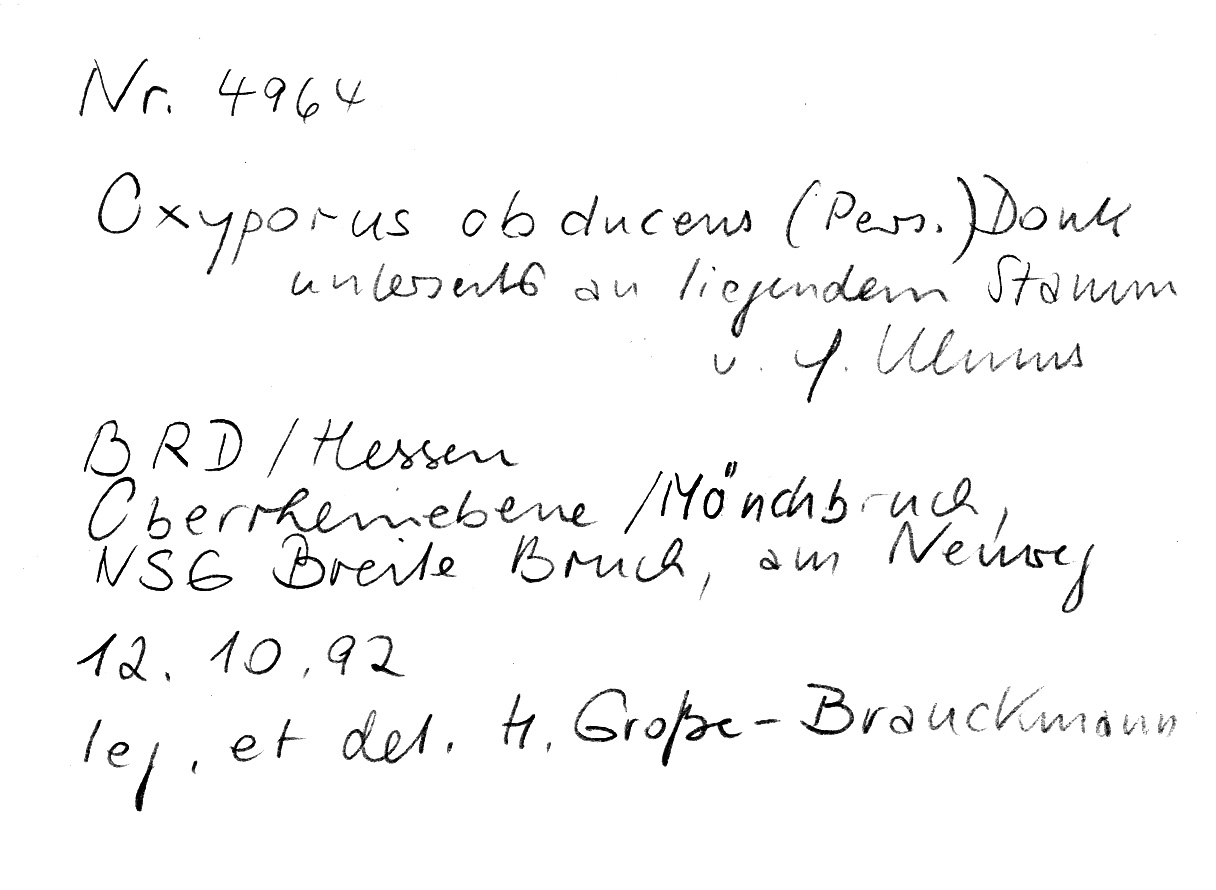 Nr. 4964
Oxyporus obducens (Pers.) Donk
unterseits an liegendem Stamm
v. f. Ulmus
BRD / Hessen
Oberrheinebene / Mönchbruch,
NSG Breite Bruch, am Neuweg
12. 10. 92
leg. et det. H. Große-Brauckmann